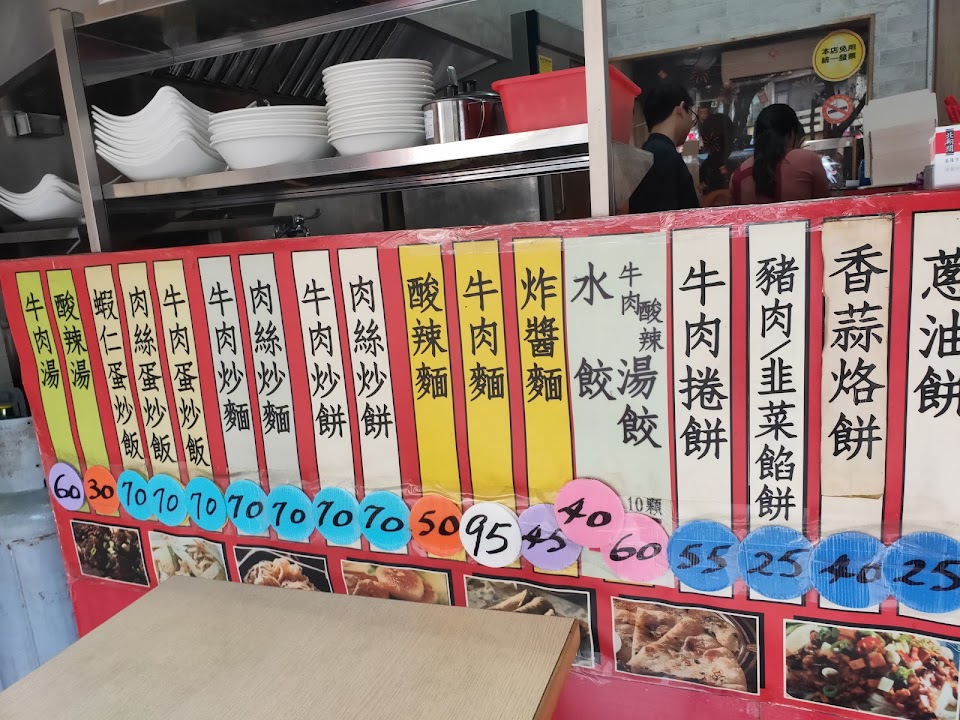 本店免用
統一發票
牛肉湯
60
酸辣湯
30
蝦仁蛋炒飯
70
肉絲蛋炒飯
70
牛肉蛋炒飯
70
牛肉炒麵
70
肉絲炒麵
70
牛肉炒餅
70
肉絲炒餅
70
酸辣麵
50
牛肉麵
95
炸醬麵
45
水餃
40
牛肉
酸辣
湯餃
10顆
60
牛肉捲餅
55
豬肉/韭菜餡餅
25
香蒜烙餅
40
蔥油餅
25